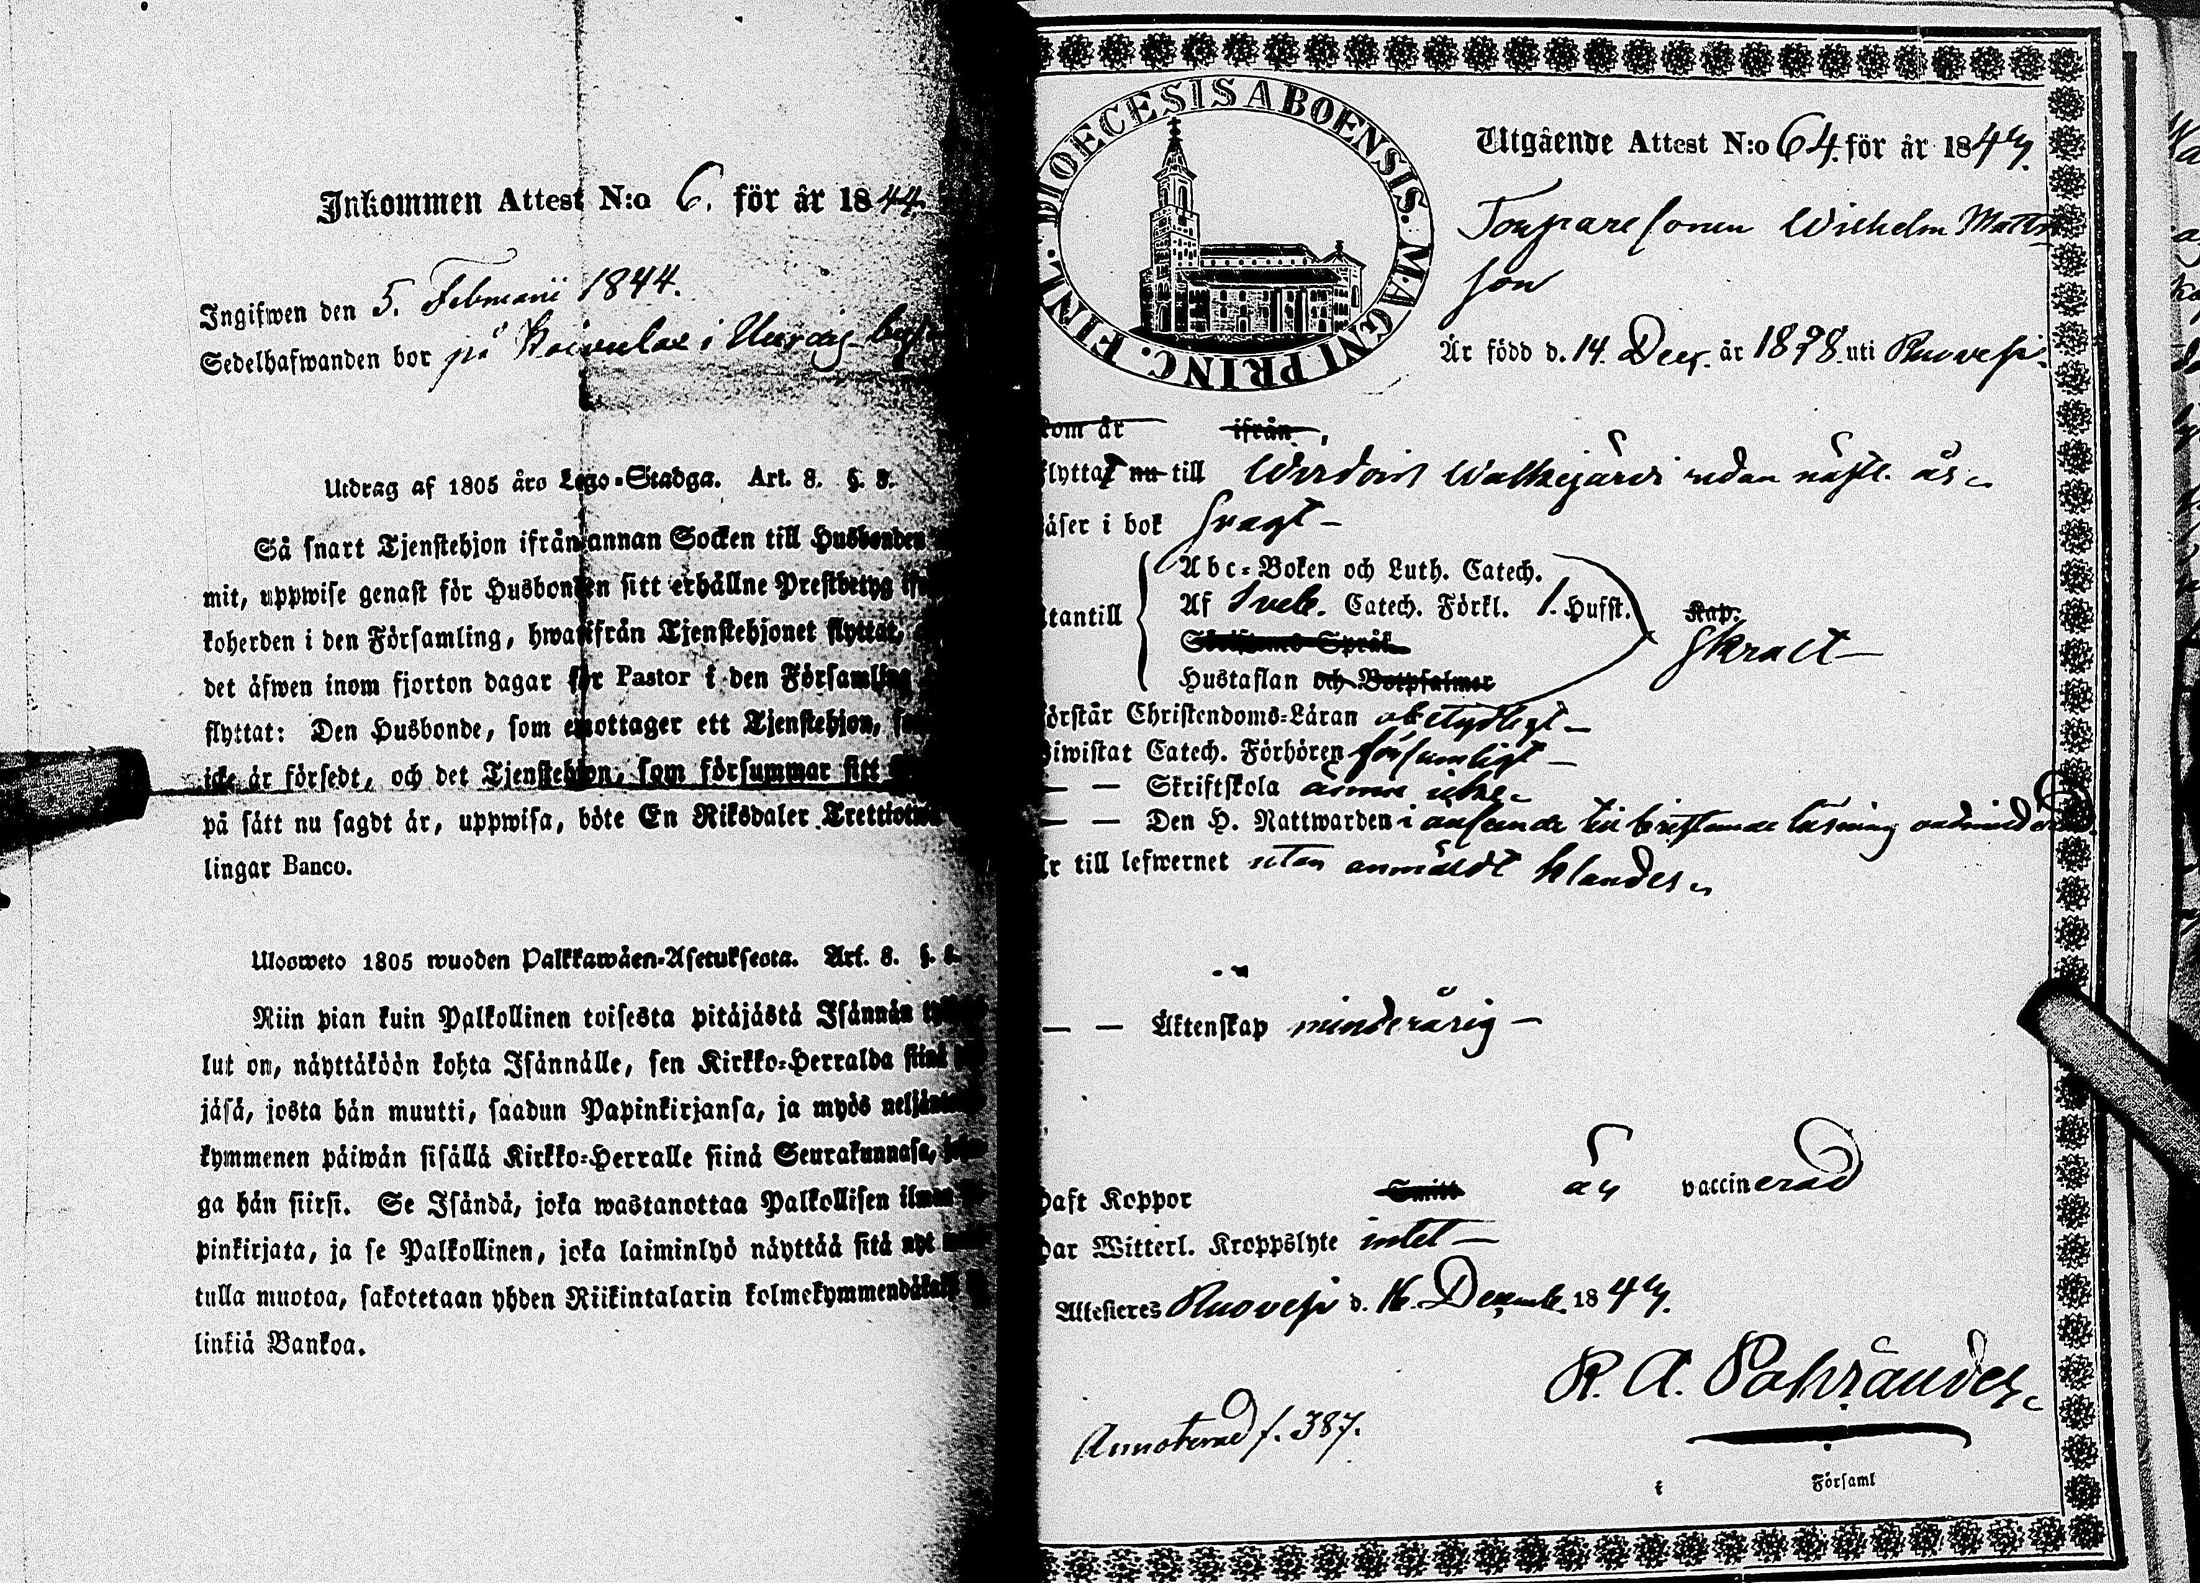 Inkommen Attest N:o 6. för år 1844.
Ingifwen den 5. Februarii 1844.
Sedelhafwanden bor på i
Utdrag af 1805 års Lego-Stadga. Art. 8. §. 8.
Så snart Tjenstehjon ifrån annan Socken till Husbonden
mit, uppwise genast för Husbonden sitt erhållne Prestbetyg
koherden i den Församling, hwarifrån Tjenstehjonet flyttat,
det äfwen inom fjorton dagar för Pastor i den Församling
flyttat: Den Husbonde, som emottager ett Tjenstehjon,
icke är försedt, och det Tjenstehjon, som försummar sitt
på sätt nu sagdt är, uppwisa, böte En Riksdaler
lingar Banco.
Ulosweto 1805 wuoden Palkkawäen-Asetuksesta. Art. 8. §. 8.
Niin pian kuin Palkollinen toisesta pitäjästä Isännän
lut on, näyttäköön kohta Isännälle, sen Kirkko-Herralda siinä
jäsä, josta hän muutti, saadun Papinkirjansa, ja myös
kymmenen päiwän sisällä Kirkko-Herralle siinä Seurakunnasa,
ga hän siirsi. Se Isändä, joka wastanottaa Palkollisen ilman
pinkirjata, ja se Palkollinen, joka laiminlyö näyttää sitä nyt
tulla muotoa, sakotetaan yhden Riikintalarin
linkiä Bankoa.
DIOECESIS ABOENSIS. MAGNI PRINC. FINL.
Utgående Attest N:o 64. för år 1843.
Torparesonen Wilhelm Matts
son
Är född d. 14. Dec. år 18 8. uti Ruovesi.
som är ifrån
flyttat nu till Wirdois sedan näst. år
läser i bok svagt
Abc-Boken och Luth. Catech.
utantill Af Sveb. Catech. Förkl. 1. Hufst. Kap.
Skriftenes Språk
Hustaflan och Botpsalmer
förstår Christendoms-Läran obetydligt
biwistat Catech. Förhören försumligt
— — Skriftskola ännu icke
— — Den H. Nattwarden i anseende till bristande läsning
är till lefwernet utan anmäldt klander
— — Äktenskap minderårig
haft Koppor Smitt är vaccinerad
har Witterl. Kroppslyte intet
Attesteres Ruovesi d. 16. Decemb. 1843.
R. A.
Annoterad f. 387.
i Församl